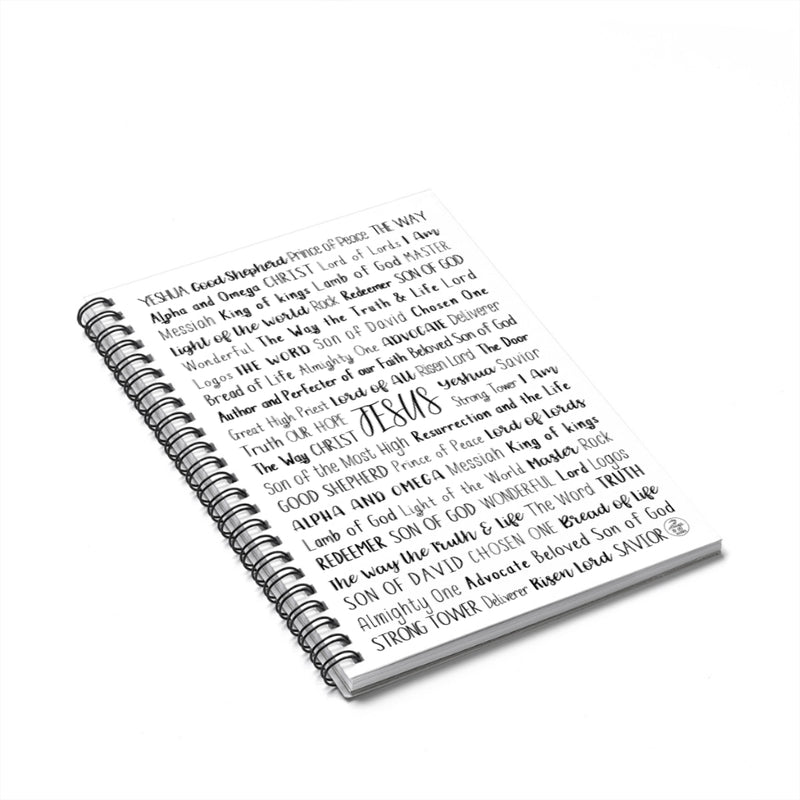 YESHUA Good Shepherd Prince of Peace THE WAY
Alpha and Omega CHRIST Lord of Lords I Am
Messiah King of kings Lamb of God MASTER
Light of the World Rock Redeemer SON OF GOD
Wonderful The Way the Truth & Life Lord
Logos THE WORD Son of David Chosen One
Bread of Life Almighty One ADVOCATE Deliverer
Author and Perfecter of our Faith Beloved Son of God
Great High Priest Lord of All Risen Lord The Door
Truth OUR HOPE JESUS Yeshua Savior
The Way CHRIST Strong Tower I Am
Son of the Most High Resurrection and the Life
GOOD SHEPHERD Prince of Peace Lord of Lords
ALPHA AND OMEGA Messiah King of kings
Lamb of God Light of the World Master Rock
REDEEMER SON OF GOD WONDERFUL Lord Logos
The Way the Truth & Life The Word TRUTH
SON OF DAVID CHOSEN ONE Bread of Life
Almighty One Advocate Beloved Son of God
STRONG TOWER Deliverer Risen Lord SAVIOR